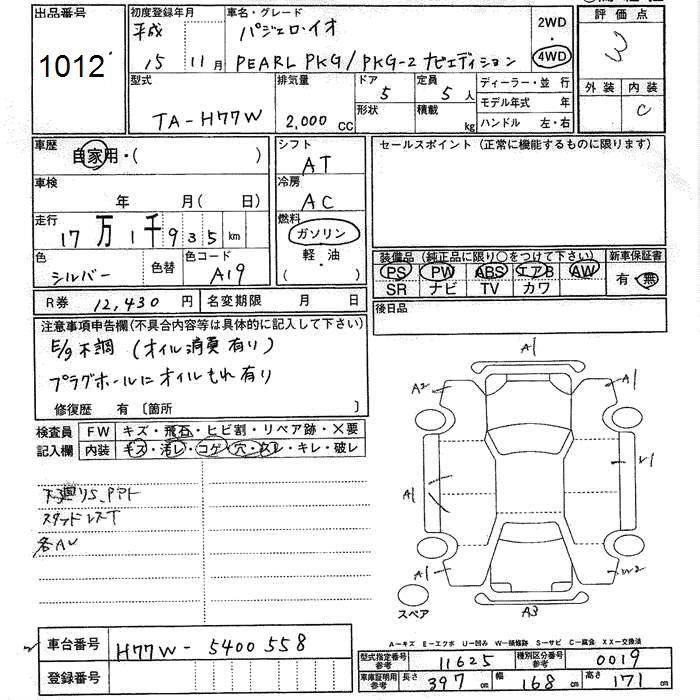 出品番号
1012
初度登録年月
平成
15 11月
車名・グレード
パジェロ・イオ
PEARL PKG/PKG-2 ナビエディション
2WD
・
4WD
評価点
3
外装 内装
C
型式
TA-H77W
排気量
2,000 CC
ドア
5
定員
5 人
形状
積載
kg
ディーラー・並 行
モデル年式 年
ハンドル 左・右
車歴
自家用・( )
車検
年 月( 日)
走行
17万1千935 km
色
シルバー
色替
色コード
A19
シフト
AT
冷房
AC
燃料
ガソリン
軽・油
( )
セールスポイント(正常に機能するものに限ります)
装備品(純正品に限り○をつけて下さい)
PS PW ABS エアB AW
SR ナビ TV カワ
新車保証書
有・無
R券 12,430 円
名変期限 月 日
後日品
注意事項申告欄(不具合内容等は具体的に記入して下さい)
E/g不調(オイル消費有り)
プラグホールにオイルもれ有り
修復歴 有〔箇所 〕
検査員
記入欄
FW キズ・飛石・ヒビ割・リペア跡・×要
内装 キズ・汚レ・コゲ・穴・スレ・キレ・破レ
下廻りS、Pアト
スタッドレスT
各AU
A1
A2
A1
A1
A1
W2
A3
スペア
A-キズ E-エクボ U-凹み W-補修跡 S-サビ C-腐食 XX-交換済
車台番号
H77W-5400558
登録番号
型式指定番号
参考
11625
種別区分番号
参考
0019
車庫証明用
参考
長さ
397 cm
幅
168 cm
高さ
171 cm